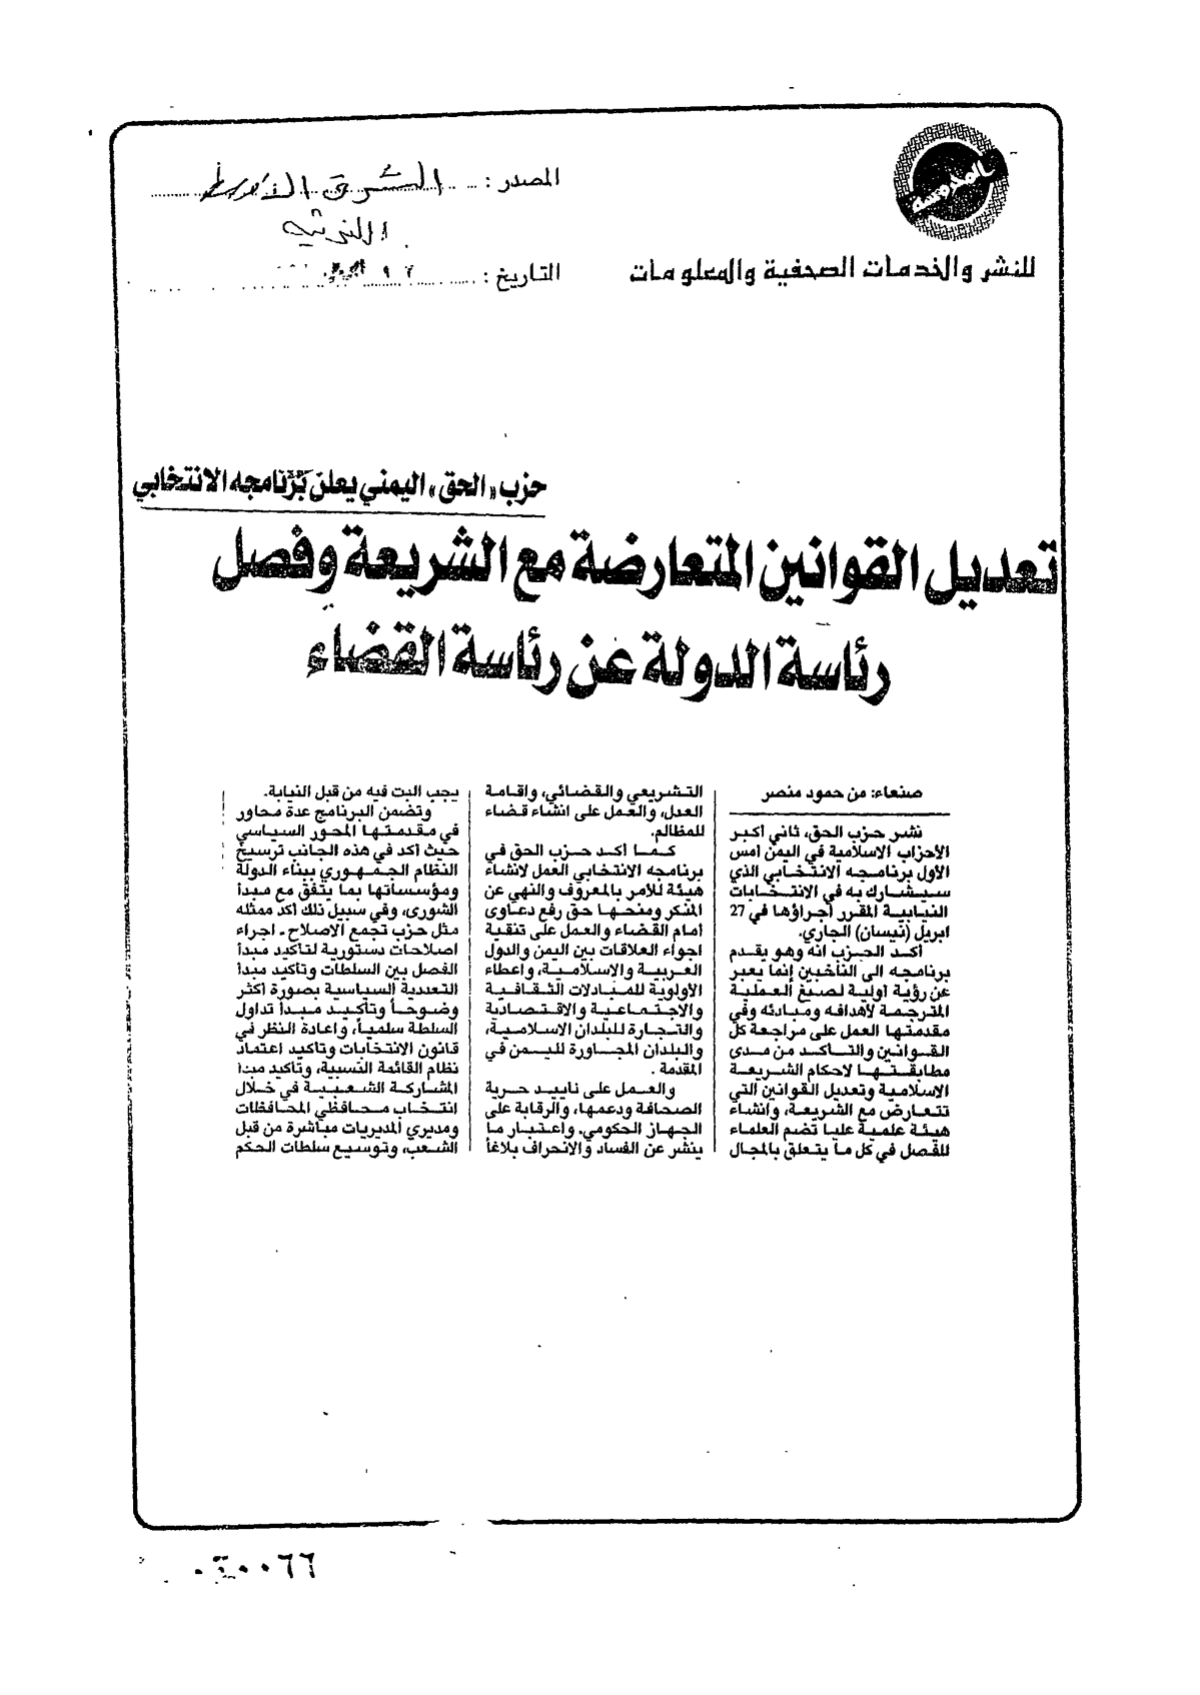 المدوسة
للنشر والخدمات الصحفية والمعلومات
المصدر: الشرق الأوسط
اللندنية
التاريخ:
حزب «الحق» اليمني يعلن برنامجه الانتخابي
تعديل القوانين المتعارضة مع الشريعة وفصل
رئاسة الدولة عن رئاسة القضاء
صنعاء: من حمود منصر
نشر حزب الحق، ثاني أكبر
الأحزاب الاسلامية في اليمن أمس
الأول برنامجه الانتخابي الذي
سيشارك به في الانتخابات
النيابية المقرر اجراؤها في 27
ابريل (نيسان) الجاري.
أكد الحزب انه وهو يقدم
برنامجه الى الناخبين إنما يعبر
عن رؤية أولية لصيغ العملية
المترجمة لأهدافه ومبادئه وفي
مقدمتها العمل على مراجعة كل
القوانين والتأكد من مدى
مطابقتها لاحكام الشريعة
الاسلامية وتعديل القوانين التي
تتعارض مع الشريعة، وانشاء
هيئة علمية عليا تضم العلماء
للفصل في كل ما يتعلق بالمجال
التشريعي والقضائي، واقامة
العدل، والعمل على انشاء قضاء
للمظالم.
كما أكد حزب الحق في
برنامجه الانتخابي العمل لانشاء
هيئة للأمر بالمعروف والنهي عن
المنكر ومنحها حق رفع دعاوى
أمام القضاء والعمل على تنقية
اجواء العلاقات بين اليمن والدول
العربية والاسلامية، واعطاء
الأولوية للمبادلات الثقافية
والاجتماعية والاقتصادية
والتجارة للبلدان الاسلامية،
والبلدان المجاورة لليمن في
المقدمة.
والعمل على تأييد حرية
الصحافة ودعمها، والرقابة على
الجهاز الحكومي. واعتبار ما
ينشر عن الفساد والانحراف بلاغاً
يجب البت فيه من قبل النيابة.
وتضمن البرنامج عدة محاور
في مقدمتها المحور السياسي
حيث أكد في هذه الجانب ترسيخ
النظام الجمهوري ببناء الدولة
ومؤسساتها بما يتفق مع مبدأ
الشورى، وفي سبيل ذلك أكد ممثله
مثل حزب تجمع الاصلاح - اجراء
اصلاحات دستورية لتأكيد مبدأ
الفصل بين السلطات وتأكيد مبدأ
التعددية السياسية بصورة أكثر
وضوحاً وتأكيد مبدأ تداول
السلطة سلمياً، واعادة النظر في
قانون الانتخابات وتأكيد اعتماد
نظام القائمة النسبية، وتأكيد مبدأ
المشاركة الشعبية في خلال
انتخاب محافظي المحافظات
ومديري المديريات مباشرة من قبل
الشعب، وتوسيع سلطات الحكم